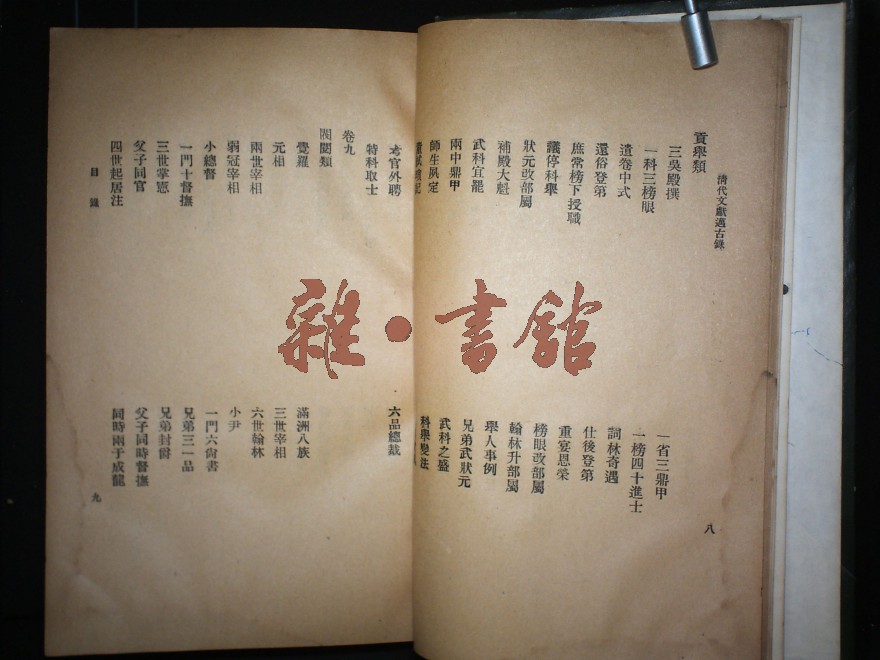 清代文獻邁古錄
八
貢舉類
三吳殿撰
一省三鼎甲
一科三榜眼
一榜四十進士
遺卷中式
詞林奇遇
還俗登第
仕後登第
庶常榜下授職
重宴恩榮
議停科舉
榜眼改部屬
狀元改部屬
翰林升部屬
補殿大魁
舉人事例
武科宜罷
兄弟武狀元
兩中鼎甲
武科之盛
師生夙定
科舉變法
考官外聘
六品總裁
特科取士
卷九
閥閱類
覺羅
滿洲八族
元相
三世宰相
兩世宰相
六世翰林
弱冠宰相
小尹
小總督
一門六尙書
一門十督撫
兄弟三一品
三世掌憲
兄弟封爵
父子同官
父子同時督撫
四世起居注
同時兩于成龍
目錄
九
雜·書舘